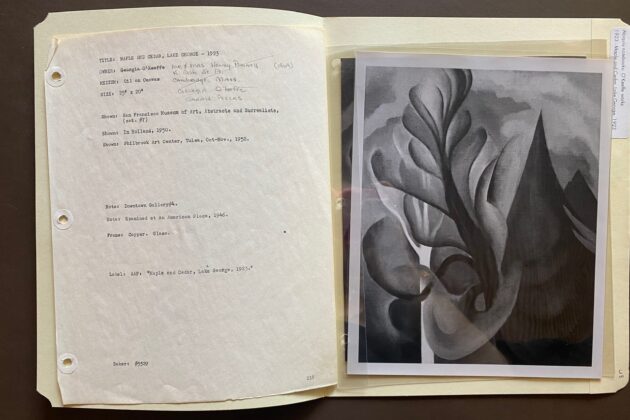 TITLE: MAPLE AND CEDAR, LAKE GEORGE - 1923
OWNER: Georgia O'Keeffe
Mr & Mrs Henry
Cambridge, Mass.
MEDIUM: Oil on Canvas
Georgia O'Keeffe
SIZE: 25" x 20"
Shown: San Francisco Museum of Art, Abstracts and Surrealists,
Shown: In Holland, 1950.
Shown: Philbrook Art Center, Tulsa, Oct-Nov., 1952.
Note: Downtown Gallery
Note: Examined at An American Place, 1946.
Frame: Copper. Glass.
Label: AAP: "Maple and Cedar, Lake George, 1923."
Baker:
Abiquiu notebooks: O'Keeffe works
1923: Maple and Cedar, Lake George, 1922